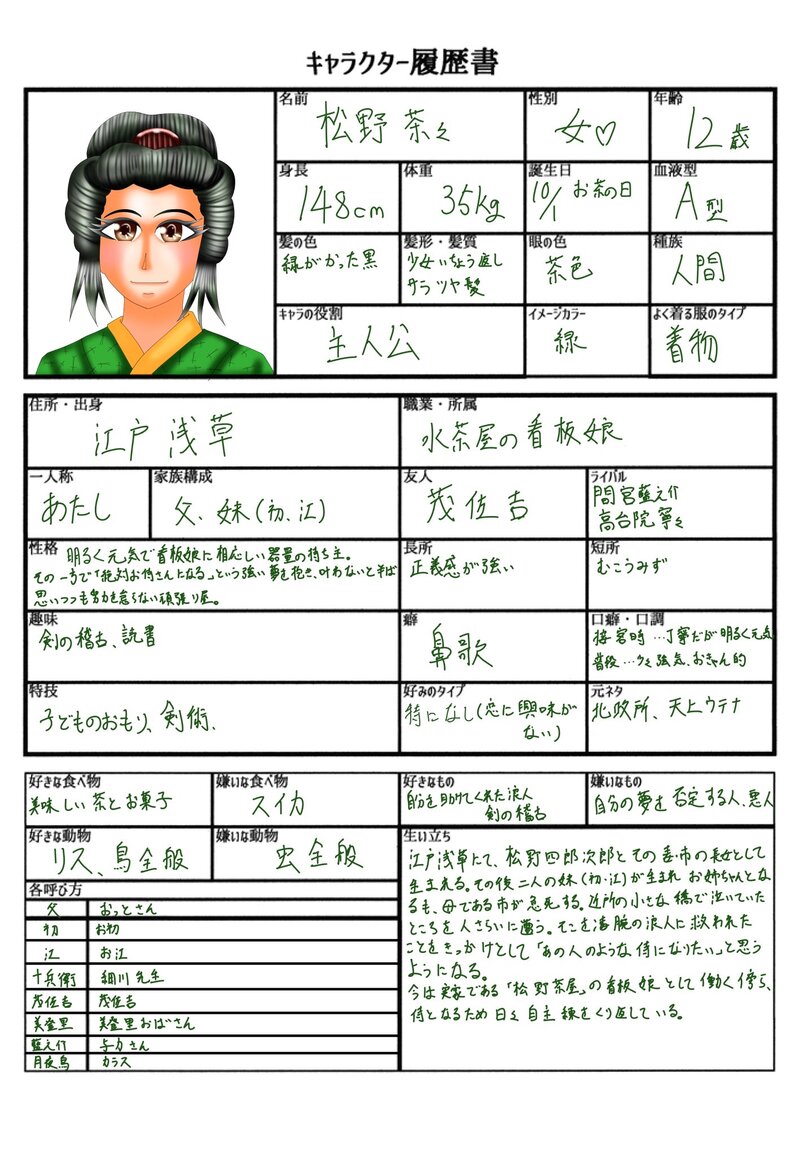 キャラクター履歴書
名前
松野 茶々
性別
女♡
年齢
12歳
身長
148cm
体重
35kg
誕生日
10/1 お茶の日
血液型
A型
髪の色
緑がかった黒
髪形・髪質
少女いちょう返し
サラツヤ髪
眼の色
茶色
種族
人間
キャラの役割
主人公
イメージカラー
緑
よく着る服のタイプ
着物
住所・出身
江戸 浅草
職業・所属
水茶屋の看板娘
一人称
あたし
家族構成
父、妹(初、江)
友人
茂佐吉
ライバル
間宮藍之介
高台院寧々
性格
明るく元気で看板娘に相応しい器量の持ち主。
その一方で「絶対お侍さんになる」という強い夢を抱き、叶わないと半ば
思いつつも努力を怠らない頑張り屋。
長所
正義感が強い
短所
むこうみず
趣味
剣の稽古、読書
癖
鼻歌
口癖・口調
接客時…丁寧だが明るく元気
普段…少々強気、おきゃん的
特技
子どものおもり、剣術、
好みのタイプ
特になし(恋に興味が
ない)
元ネタ
北政所、天上ウテナ
好きな食べ物
美味しい茶とお菓子
嫌いな食べ物
スイカ
好きなもの
自分を助けてくれた浪人
剣の稽古
嫌いなもの
自分の夢を否定する人、悪人
好きな動物
リス、鳥全般
嫌いな動物
虫全般
生い立ち
江戸浅草にて、松野四郎次郎とその妻市の長女として
生まれる。その後二人の妹(初、江)が生まれ お姉ちゃんとな
るも、母である市が急死する。近所の小さな橋で泣いていた
ところを人さらいに遭う。そこを凄腕の浪人に救われた
ことをきっかけとして「あの人のような侍になりたい」と思う
ようになる。
今は実家である「松野茶屋」の看板娘として働く傍ら、
侍となるため日々自主練をくり返している。
各呼び方
父 おっとさん
初 お初
江 お江
十兵衛 細川先生
茂佐吉 茂佐吉
美登里 美登里おばさん
藍之介 与力さん
月夜烏 カラス